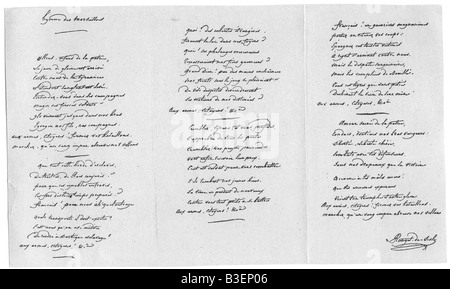 Hymne des Marseillois
Allons, enfans de la patrie,
le jour de gloire est arrivé
contre nous de la tyrannie
l'étendart sanglant est levé
Entendez-vous dans les campagnes
mugir ces féroces soldats
ils viennent jusques dans nos bras
égorger nos fils, nos compagnes
aux armes, citoyens, formez vos bataillons
marchez, qu'un sang impur abreuve nos sillons
que veut cette horde d'esclaves,
de traîtres, de Rois conjurés
pour qui ces ignobles entraves
ces fers dès longtemps préparés
français! pour nous ah quel outrage
quels transports il doit exciter
c'est nous qu'on ose méditer
de rendre à l'antique esclavage
aux armes, citoyens! &c
quoi! des cohortes étrangères
feroient la loi dans nos foyers
quoi! ces phalanges mercenaires
terrasseroient nos fiers guerriers
Grand Dieu! par des mains enchaînées
nos fronts sous le joug se ploiroient
de vils despotes deviendroient
les maîtres de nos destinées
Aux armes, citoyens! &c
Tremblez, tyrans et vous perfides
l'opprobre de tous les partis
Tremblez vos projets parricides
vont enfin recevoir leur prix
tout est soldat pour vous combattre
s'ils tombent nos jeunes héros
la terre en produit de nouveaux
contre vous tout prêts à se battre
Aux armes, citoyens! &c
français! en guerriers magnanimes
portez ou retenez vos coups
épargnez ces tristes victimes
à regret s'armant contre nous
mais le despote sanguinaire
mais les complices de Bouillé
tous ces tigres qui sans pitié
déchirent le sein de leur mère
aux armes, citoyens, &c
Amour sacré de la patrie
conduis, soutiens nos bras vengeurs
Liberté, liberté chérie,
combats avec tes défenseurs
sous nos drapeaux que la victoire
accoure à tes mâles accens
que tes ennemis expirans
voient ton triomphe et notre gloire
Aux armes, citoyens, formez vos bataillons
marchez, qu'un sang impur abreuve nos sillons
Rouget de Lisle
alamy
B3EP06